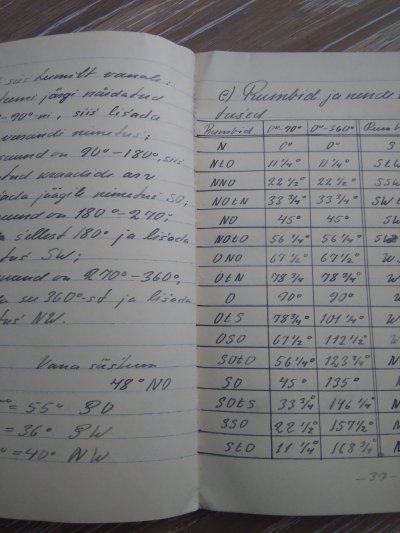 siis tumilt vanale:
järgi näidatud
-90°-ni, siis lisada
nimetus;
on 90°-180°, siis
kraadide arv
jäägile nimetus SO;
on 180°-270°,
sellest 180° ja lisada
SW;
on 270°-360°,
su 360°-st ja lisada
NW.
Vana süsteem
48° NO
= 55° SO
= 36° SW
= 40° NW
c) Rumbid ja nende
Rumbid 0°-90° 0°-360°
N 0° 0° S
NtO 11¼° 11¼° StW
NNO 22½° 22½° SSW
NOtN 33¾° 33¾° SWt
NO 45° 45° SW
NOtO 56¼° 56¼° SW
ONO 67½° 67½° W
OtN 78¾° 78¾° W
O 90° 90° W
OtS 78¾° 101¼° W
OSO 67½° 112½° W
SOtO 56¼° 123¾° N
SO 45° 135° N
SOtS 33¾° 146¼° N
SSO 22½° 157½° N
StO 11¼° 168¾° N
-37-